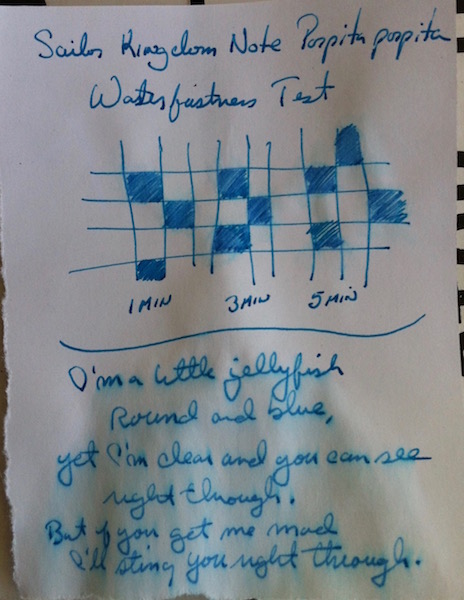 Sailor Kingdom Note Porpita porpita
Waterfastness Test
1 MIN 3 MIN 5 MIN
I'm a little jellyfish
Round and blue,
yet I'm clear and you can see
right through.
But if you get me mad
I'll sting you right through.